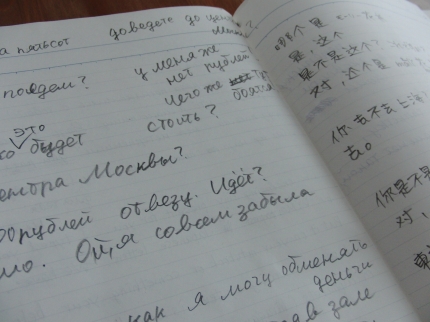 доведете до
поедем?
у меня же
нет рублей
чего же
бояться
это
будет
стоить?
центра Москвы?
00 рублей отвезу. Идёт?
Ой, я совсем забыла
как я могу обменять
деньги
в зале
哪个是
是,这个
是不是这个?
对,这个是
你去不去上海
去。
你是不是
对,